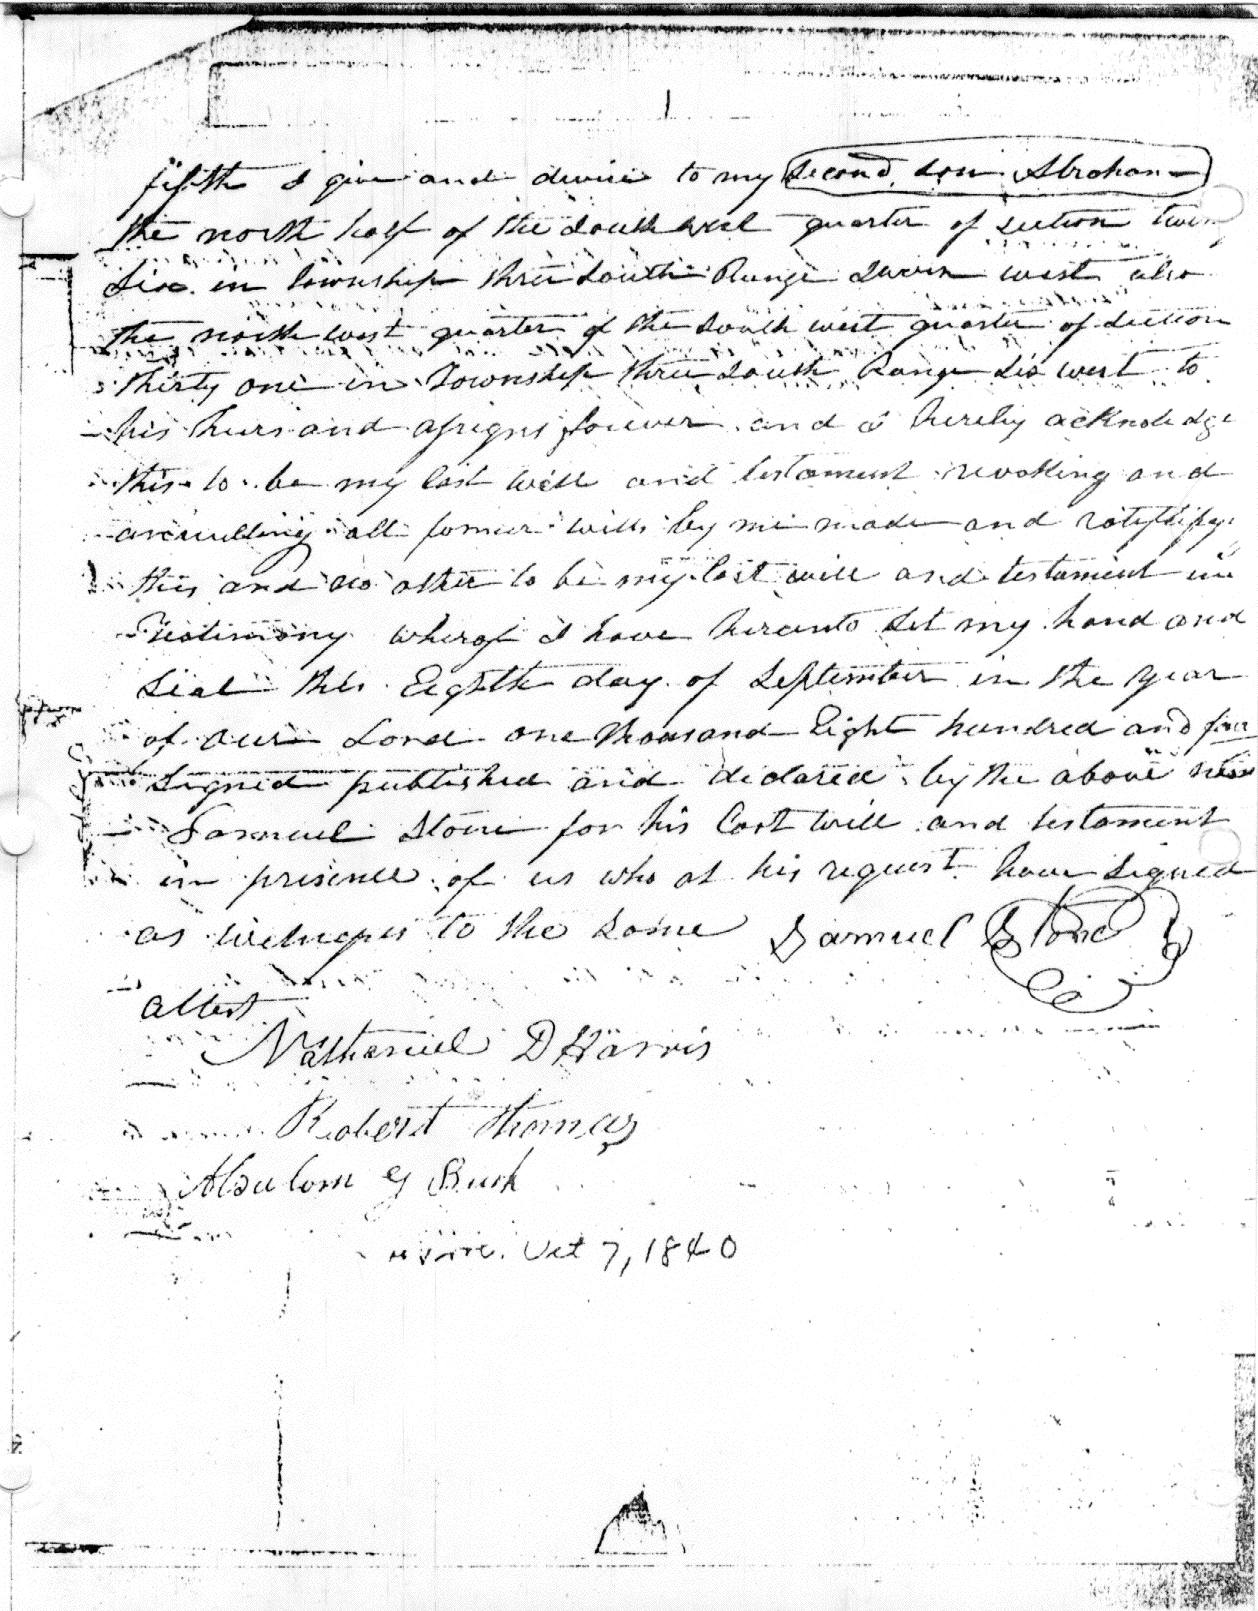 fifth I give and devise to my second son Abraham
the north half of the South West quarter of section twen
Six in Township three South Range Seven west also
the north west quarter of the South west quarter of Section
thirty one in Township three South Range Six west to
his heirs and assigns forever and I hereby acknoledge
this to be my last will and testament revoking and
annulling all former wills by me made and
this and no other to be my last will and testament in
Testimony wherof I have hereunto Set my hand and
Seal this Eighth day of September in the year
of our Lord one thousand Eight hundred and
Signed published and declared by the above
Samuel Stone for his Last will and testament
in presence of us who at his request have Signed
as witnesses to the Same Samuel Stone
attest
Nathaniel D Harris
Robert Thomas
Absulom G Burk
Oct 7, 1840